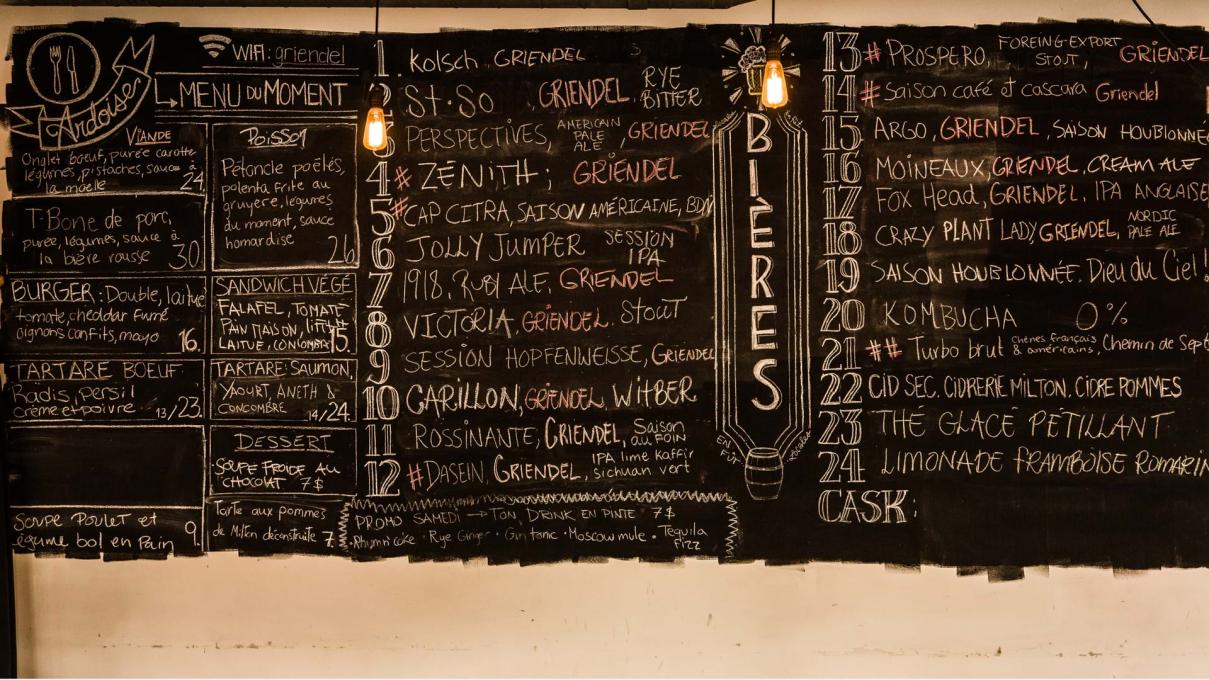 Ardoise
WIFI: griendel
MENU DU MOMENT
VIANDE
Onglet boeuf, purée carotte
légumes, pistaches, sauce à
la moelle 24
T-Bone de porc,
purée, légumes, sauce à
la bière rousse 30
BURGER: Double, laitue
tomate, cheddar fumé
oignons confits, mayo 16.
TARTARE BOEUF
Radis, persil
crème et poivre 13/23.
Soupe Poulet et
légume bol en Pain 9.
POISSON
Pétoncle poêlés,
polenta frite au
gruyère, légumes
du moment, sauce
homardise 26
SANDWICH VÉGÉ
FALAFEL, TOMATE
PAIN MAISON,
LAITUE, CONCOMBRE 15.
TARTARE: SAUMON,
YAOURT, ANETH &
CONCOMBRE 14/24.
DESSERT
SOUPE FROIDE AU
CHOCOLAT 7$
Tarte aux pommes
de Milton déconstruite 7.
1. Kolsch GRIENDEL
2 St-So GRIENDEL, RYE BITTER
3 PERSPECTIVES, AMERICAN PALE ALE, GRIENDEL
4 # ZÉNITH; GRIENDEL
5 # CAP CITRA, SAISON AMÉRICAINE, BDM
6 JOLLY JUMPER SESSION IPA
7 1918, RUBY ALE, GRIENDEL
8 VICTORIA, GRIENDEL. STOUT
9 SESSION HOPFENWEISSE, GRIENDEL
10 CARILLON, GRIENDEL, WITBER
11 ROSSINANTE, GRIENDEL, Saison au FOIN
12 # DASEIN, GRIENDEL, IPA lime kaffir sichuan vert
PROMO SAMEDI → TON DRINK EN PINTE 7$
Rhum n' coke · Rye Ginger · Gin tonic · Moscow mule · Tequila Fizz
BIÈRES
EN FÛT
13 # PROSPERO, FOREING-EXPORT STOUT, GRIENDEL
14 # Saison café et cascara Griendel
15 ARGO, GRIENDEL, SAISON HOUBLONNÉ
16 MOINEAUX, GRIENDEL, CREAM ALE
17 FOX Head, GRIENDEL, IPA ANGLAISE
18 CRAZY PLANT LADY GRIENDEL, NORDIC PALE ALE
19 SAISON HOUBLONNÉE, Dieu du Ciel!
20 KOMBUCHA 0%
21 ## Turbo brut chênes français & américains, Chemin de Sept
22 CID SEC, CIDRERIE MILTON, CIDRE POMMES
23 THÉ GLACÉ PÉTILLANT
24 LIMONADE FRAMBOISE ROMARIN
CASK: